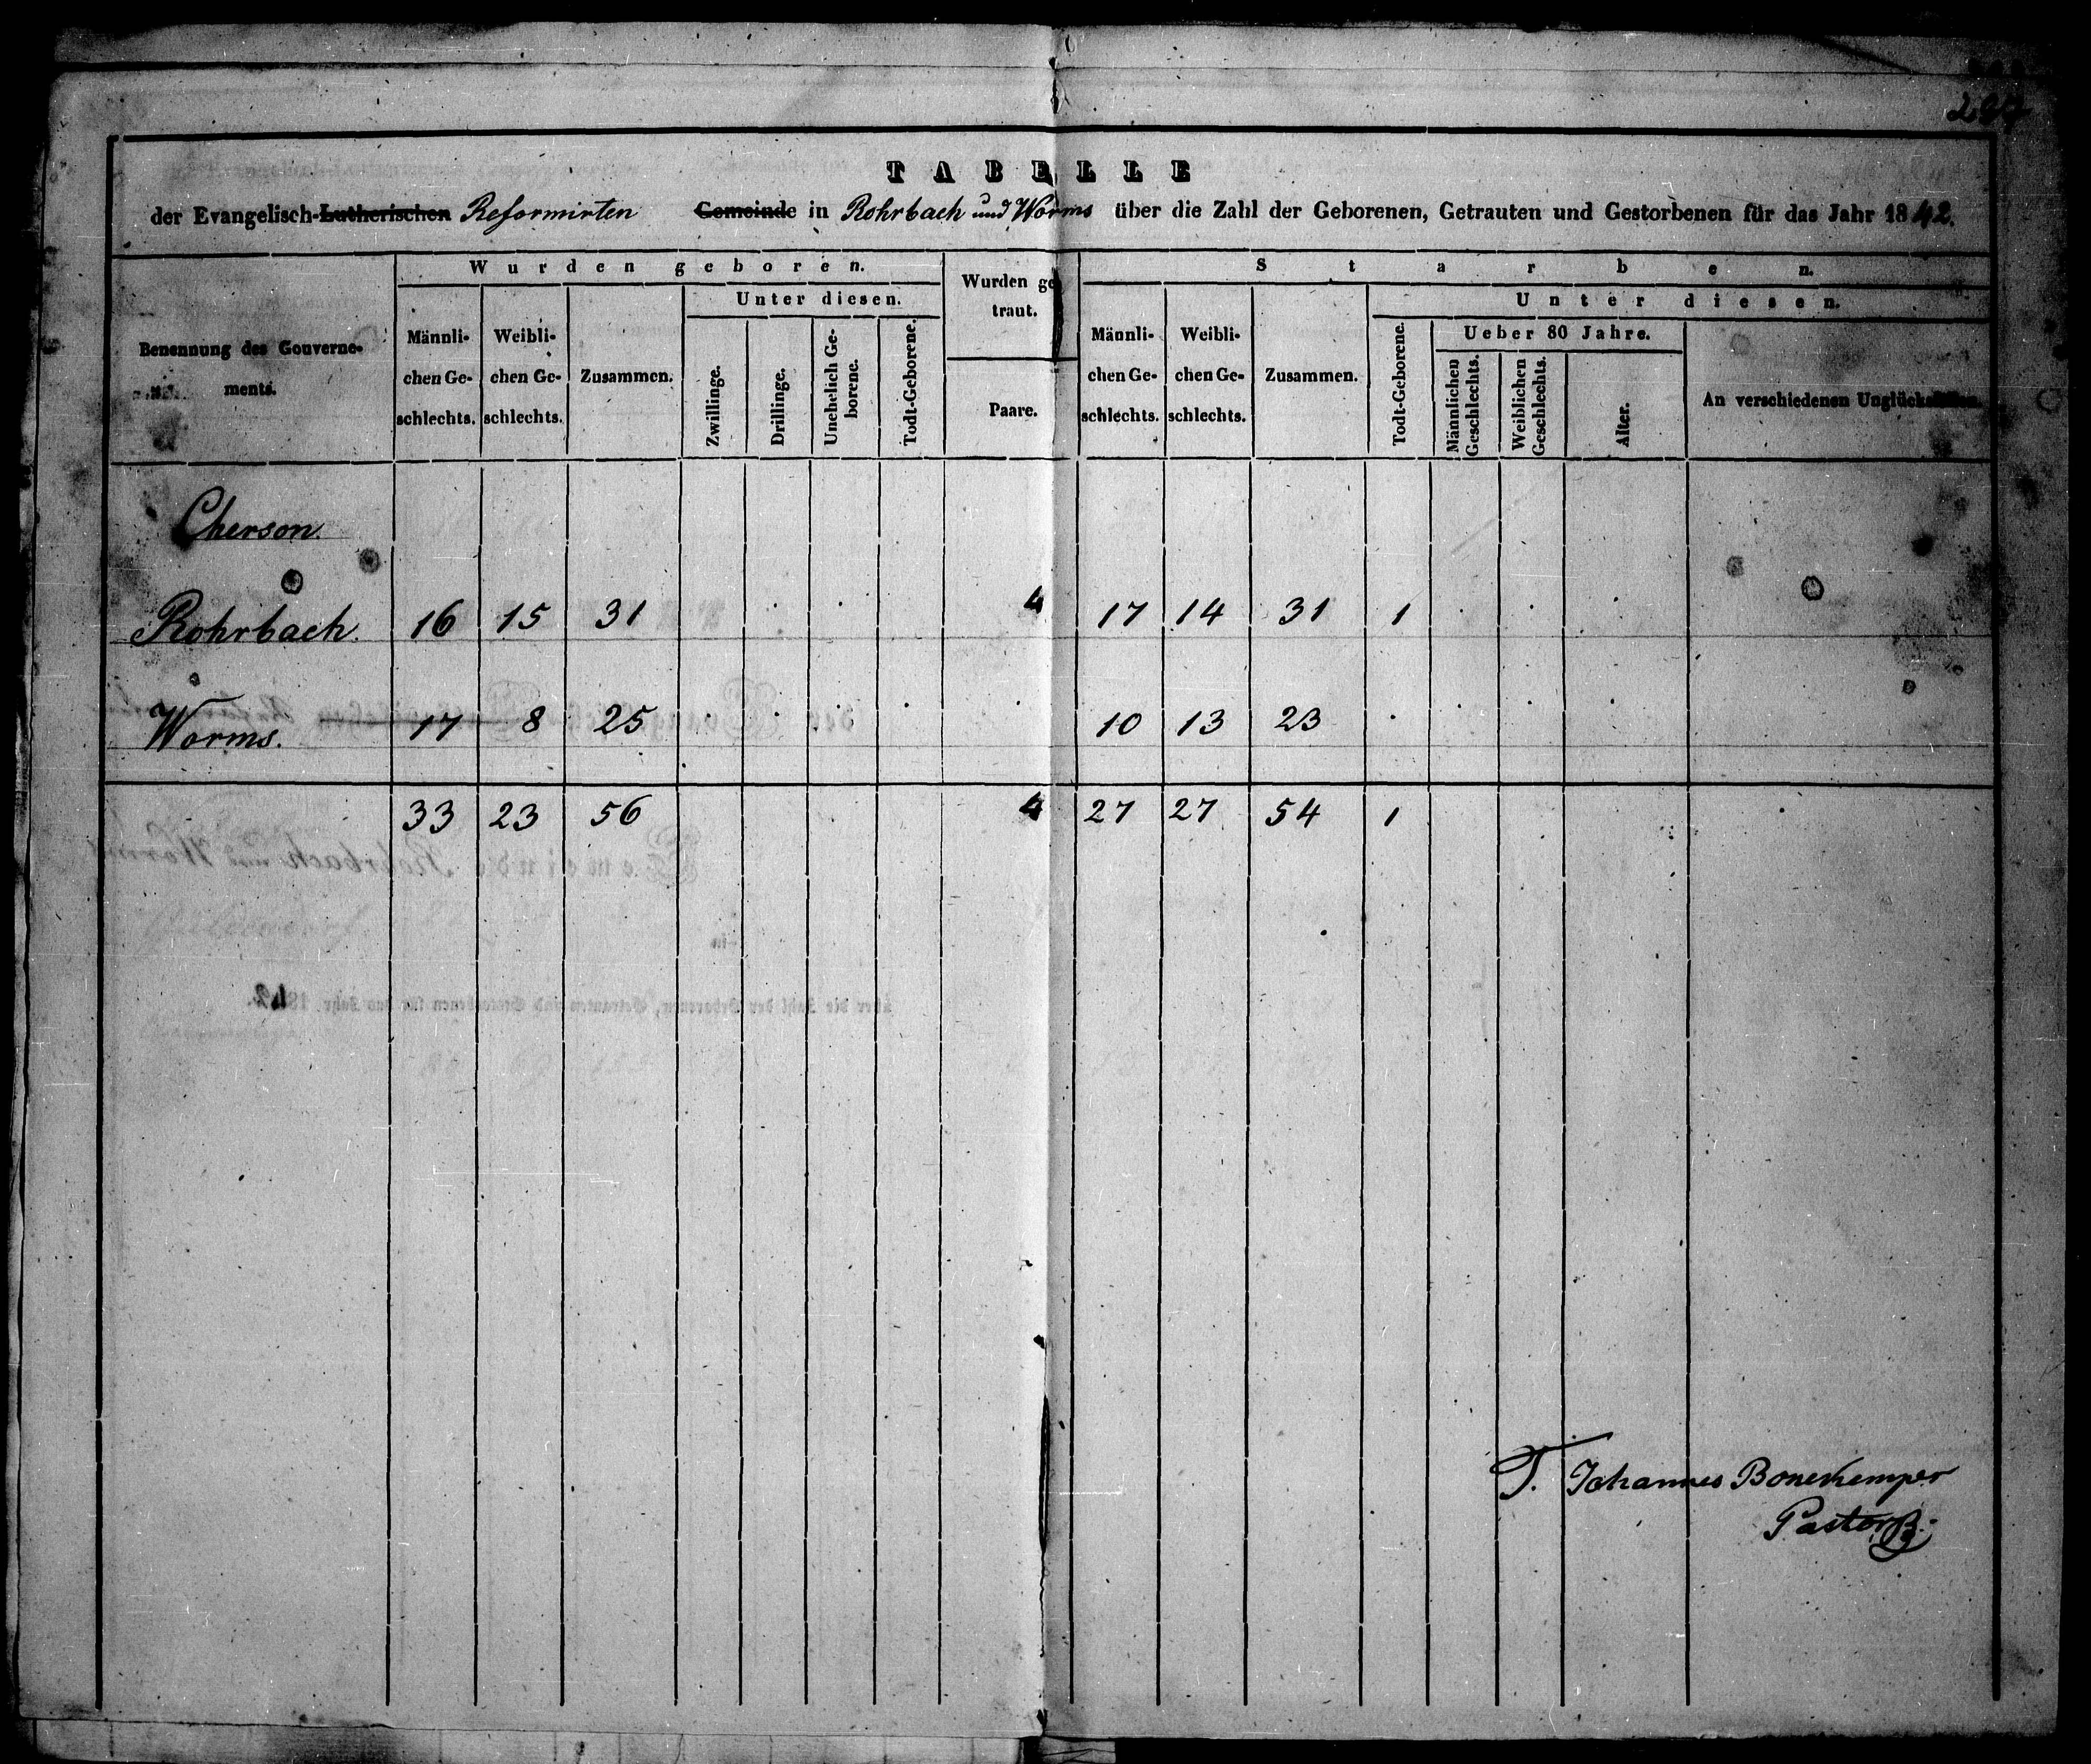 TABELLE
der Evangelisch-Lutherischen Reformirten Gemeinde in Rohrbach und Worms über die Zahl der Geborenen, Getrauten und Gestorbenen für das Jahr 1842.
Benennung des Gouvernements.
Wurden geboren.
Männlichen Geschlechts.
Weiblichen Geschlechts.
Zusammen.
Unter diesen.
Zwillinge.
Drillinge.
Unehelich Geborene.
Todt-Geborene.
Wurden getraut.
Paare.
Starben.
Männlichen Geschlechts.
Weiblichen Geschlechts.
Zusammen.
Unter diesen.
Todt-Geborene.
Ueber 80 Jahre.
Männlichen Geschlechts.
Weiblichen Geschlechts.
Alter.
An verschiedenen
Cherson.
Rohrbach. 16 15 31 4 17 14 31 1
Worms. 17 8 25 10 13 23
33 23 56 4 27 27 54 1
Johannes Bonekemper
Pastor